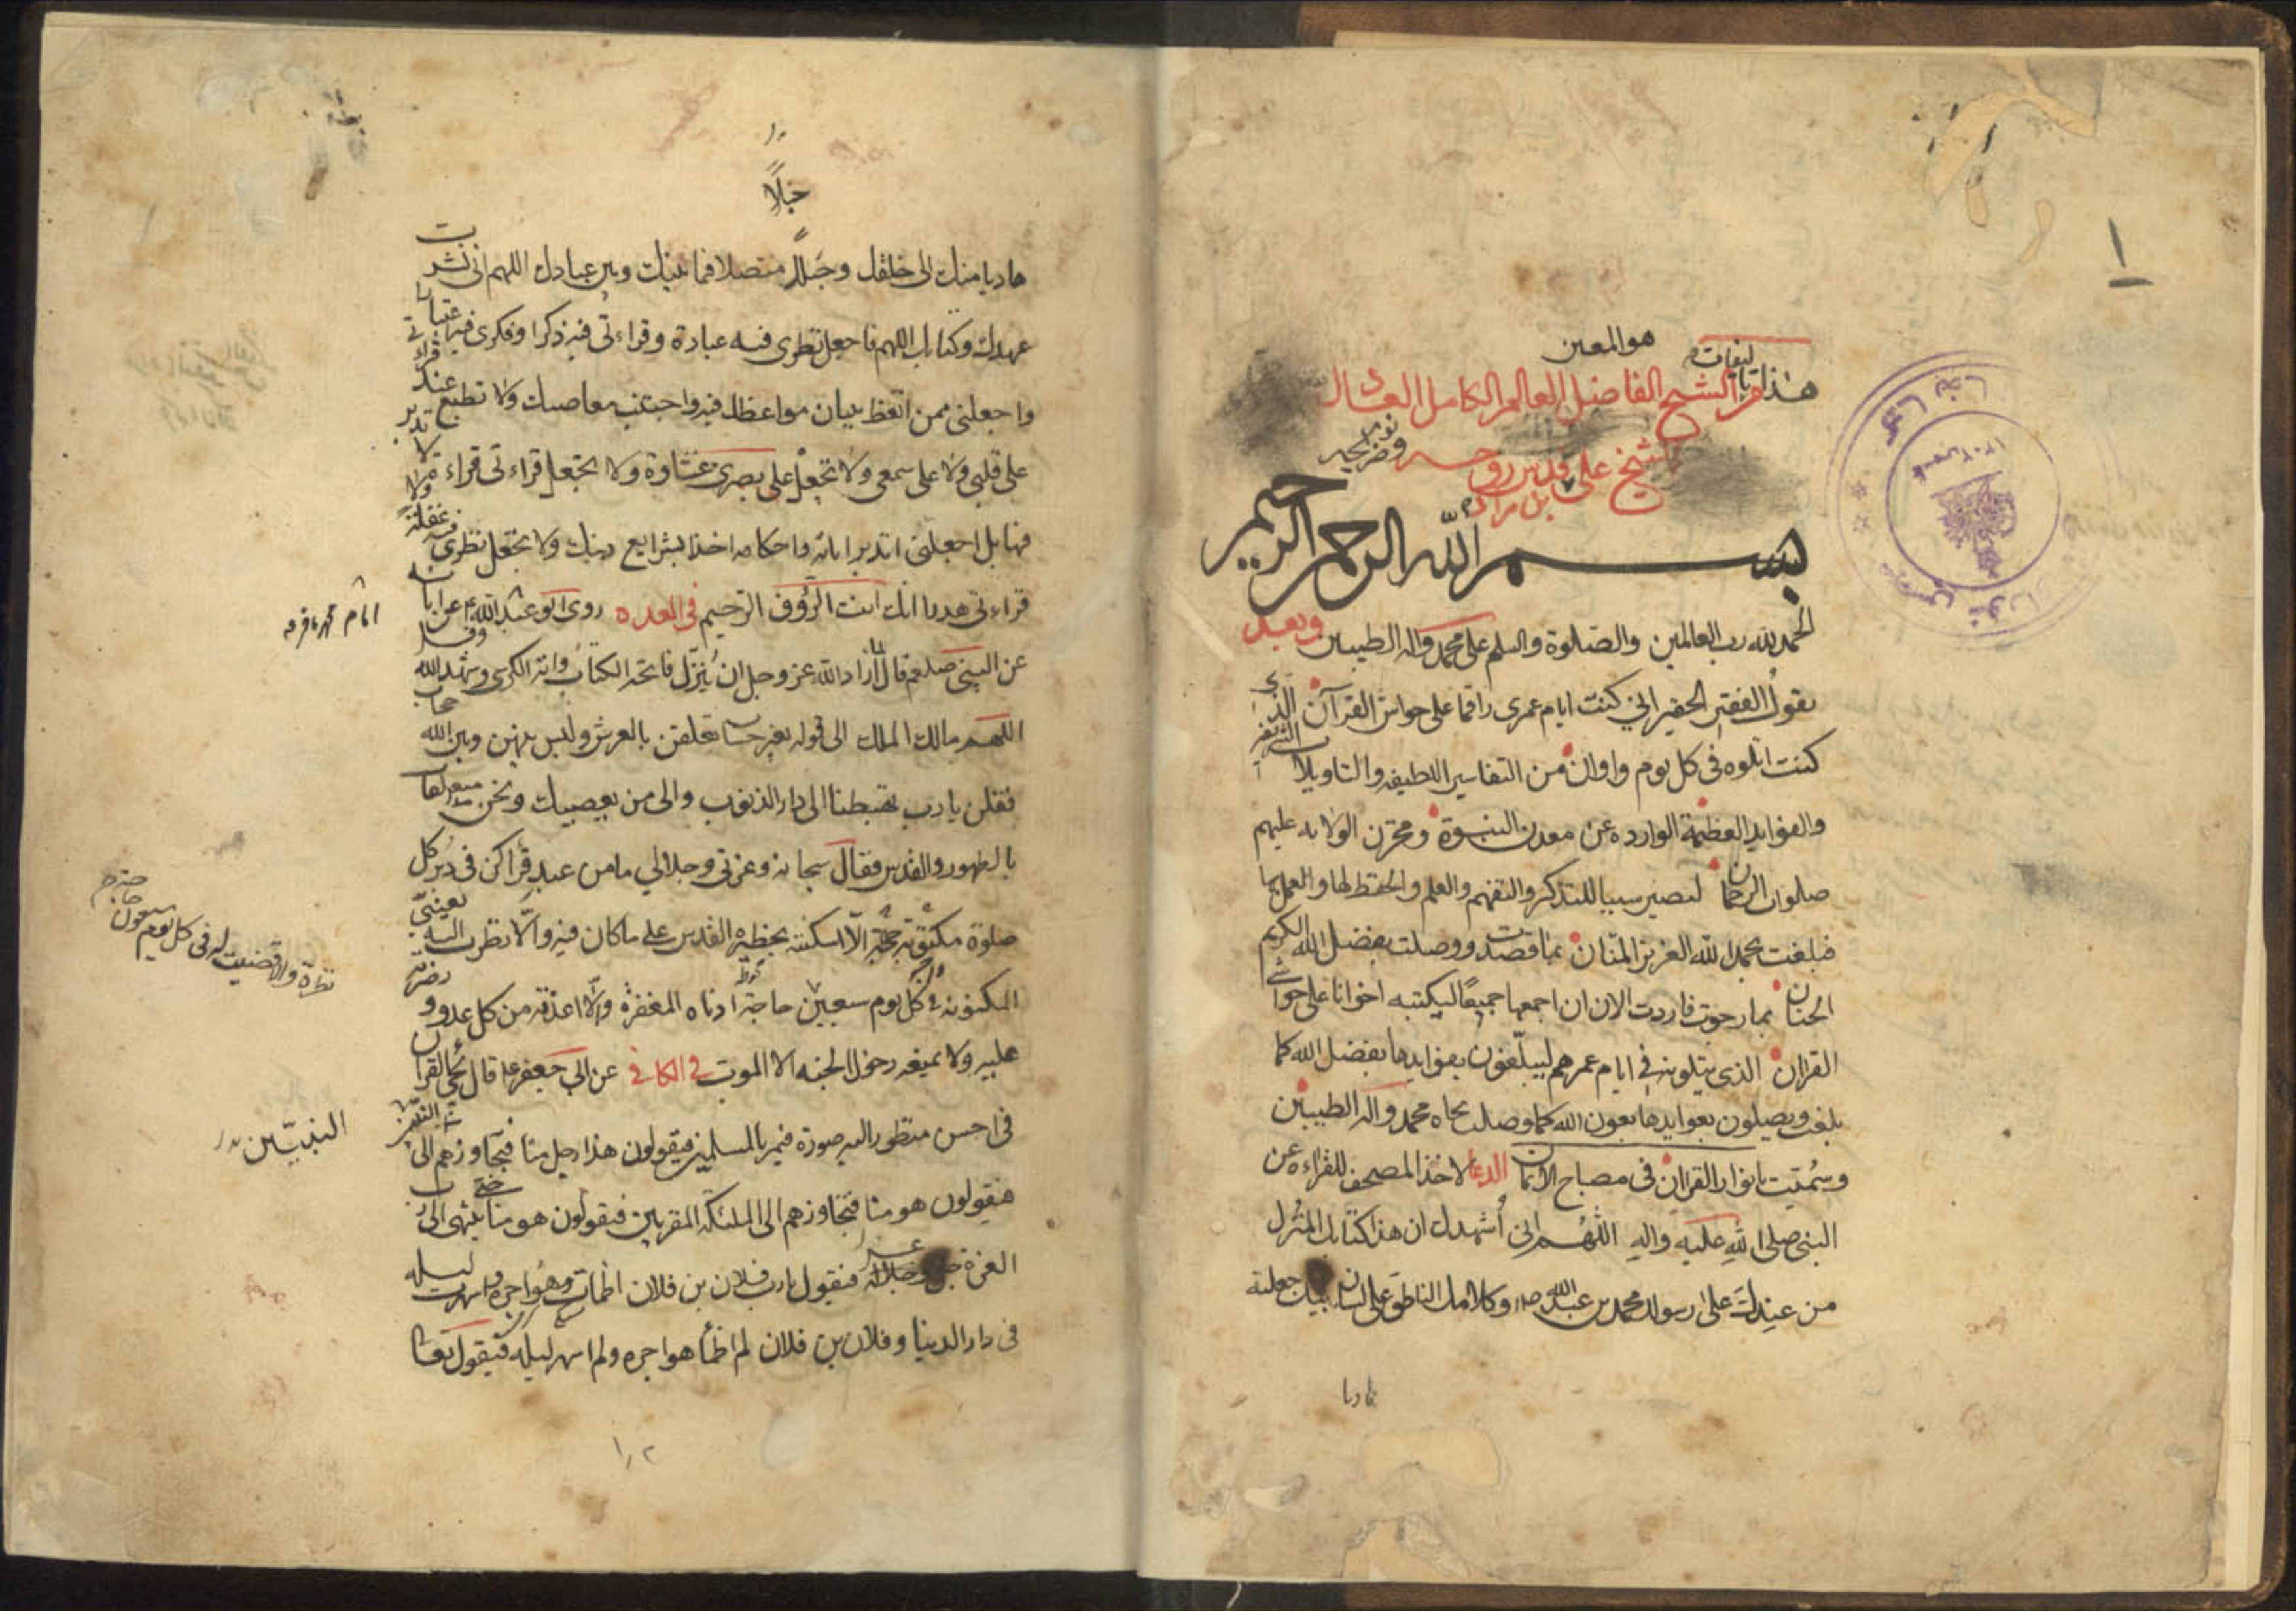 ١
هو المعين
هذا تاليفات
من الشيخ الفاضل العالم الكامل
شيخ علي قدس روحه ونور ضريحه
بن مراد
بسم الله الرحمن الرحيم
الحمد لله رب العالمين والصلوة والسلم على محمد واله الطيبين وبعد
يقول الفقير الحقير اني كنت ايام عمرى راقما على حواش القرآن الذى
كنت اتلوه فى كل يوم واوان من التفاسير اللطيفه والتاويلات الشريفه
والفوايد العظيمة الوارده عن معدن النبوة ومخزن الولايه عليهم
صلوات الرحمان ليصير سببا للتذكر والتفهم والعلم والحفظ لها والعمل بها
فبلغت بحمد الله العزيز المنان بما قصدت ووصلت بفضل الله الكريم
الحنان بما رجوت فاردت الان ان اجمعها جميعًا ليكتبه اخوانا على حواشى
القران الذى يتلونه فى ايام عمرهم ليبلغون بفوايدها بفضل الله كما
بلغت ويصلون بعوايدها بعون الله كما وصلت بجاه محمد واله الطيبين
وسميت بانوار القران فى مصباح الايمان الدعا لاخذ المصحف للقراءه عن
النبى صلى الله عليه واله اللهم انى أشهدك ان هذا كتابك المنزل
من عندك على رسولك محمد بن عبد الله ص وكلامك الناطق على لسان نبيك جعلته
هاديا
حبلًا
هاديا منك الى خلقك وحبلا متصلا فيما بينك وبين عبادك اللهم انى نشرت
عهدك وكتابك اللهم فاجعل نظرى فيه عبادة وقراءتى فيه ذكرا وفكرى فيه اعتبارا
واجعلنى ممن اتعظ ببيان مواعظك فيه واجتنب معاصيك ولا تطبع عند قراءتى
على قلبى ولا على سمعى ولا تجعل على بصرى غشاوة ولا تجعل قراءتى قراءة لا تدبر
فيها بل اجعلنى اتدبر اياته واحكامه اخذا بشرايع دينك ولا تجعل نظرى فيه غفلة ولا
قراءتى هذرا انك انت الرؤوف الرحيم فى العده روى ابو عبد الله ع عن ابائه
عن النبى صلعم قال لما اراد الله عز وجل ان يُنزّل فاتحه الكتاب واية الكرسى وشهد الله وقل
اللهم مالك الملك الى قوله بغير حساب تعلقن بالعرش وليس بينهن وبين الله حجاب
فقلن يا رب تهبطنا الى دار الذنوب والى من يعصيك ونحن متعلقات
بالطهور والقدس فقال سبحانه وعزتى وجلالى ما من عبد قرأكن فى دبر كل
صلوة مكتوبة الّا اسكنته بحظيره القدس على ما كان فيه والّا نظرت اليه بعينى
المكنونه فى كل يوم سبعين حاجة ادناه المغفرة والّا اعذته من كل عدو ونصرته
عليه ولا يمنعه دخول الجنه الا الموت فى الكافى عن ابى جعفر ع قال يجئ القران
فى احسن منظور اليه صورة فيمر بالمسلمين فيقولون هذا رجل منا فيجاوزهم الى النبيين
فيقولون هو منا فيتجاوزهم الى الملئكه المقربين فيقولون هو منا حتى ينتهى الى رب
العزة جل وجلاله فيقول يا رب فلان بن فلان اظمات هواجره واسهرت ليله
فى دار الدنيا وفلان بن فلان لم اظمأ هواجره ولم اسهر ليله فيقول تعالى
امام محمد باقر
نظرة والا قضيت له فى كل يوم سبعون حاجة
النبيّين